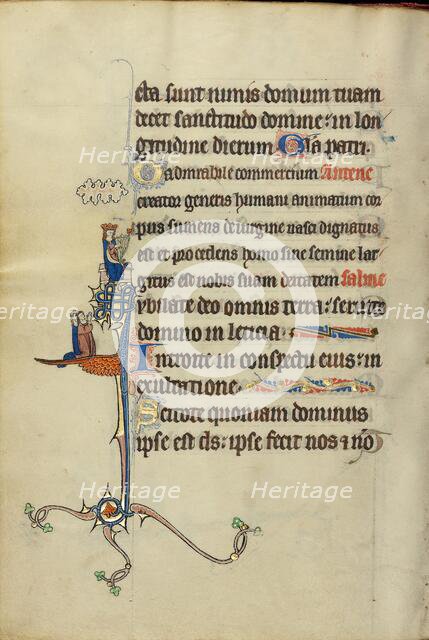 cta sunt nimis domum tuam
decet sanctitudo domine: in lon
gitudine dierum Gl'a patri.
O admirabile commercium Antene
creator generis humani animatum cor
pus sumens de uirgine nasci dignatus
est et procedens homo sine semine lar
gitus est nobis suam deitatem
ybilate deo omnis terra: seruite
domino in leticia
Introite in conspectu eius: in
exultatione
Scitote quoniam dominus
ipse est ds: ipse fecit nos & nō
Heritage
Heritage
Heritage
Heritage
Heritage
Heritage
Heritage